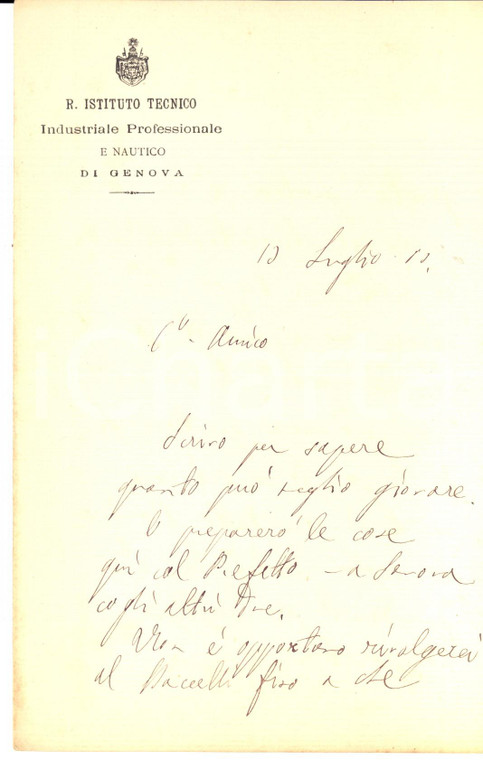 R. ISTITUTO TECNICO
Industriale Professionale
E NAUTICO
DI GENOVA
Luglio
C.º Amico
Scrivo per sapere
quanto può meglio giovare.
preparerò le cose
qui col Prefetto – a Savona
cogli altri due.
Non è opportuno rivolgersi
al Baccelli fino a che
iCharta